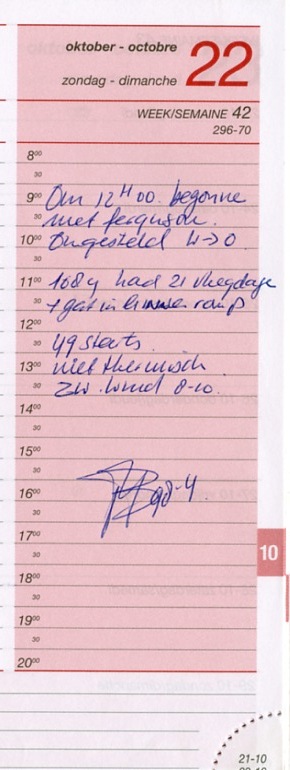 oktober - octobre
zondag - dimanche
22
WEEK/SEMAINE 42
296-70
8⁰⁰
30
9⁰⁰ Om 12 H 00 begonne
30 met ferguson.
10⁰⁰ Omgesteld W→O.
30
11⁰⁰ 1089 had 21 vliegdage
30 + gat in linker romp
12⁰⁰
30 49 starts
13⁰⁰ niet thermisch
30 ZW. wind 8-10.
14⁰⁰
30
15⁰⁰
30
16⁰⁰
30
17⁰⁰
30
18⁰⁰
30
19⁰⁰
30
20⁰⁰
10
21-10